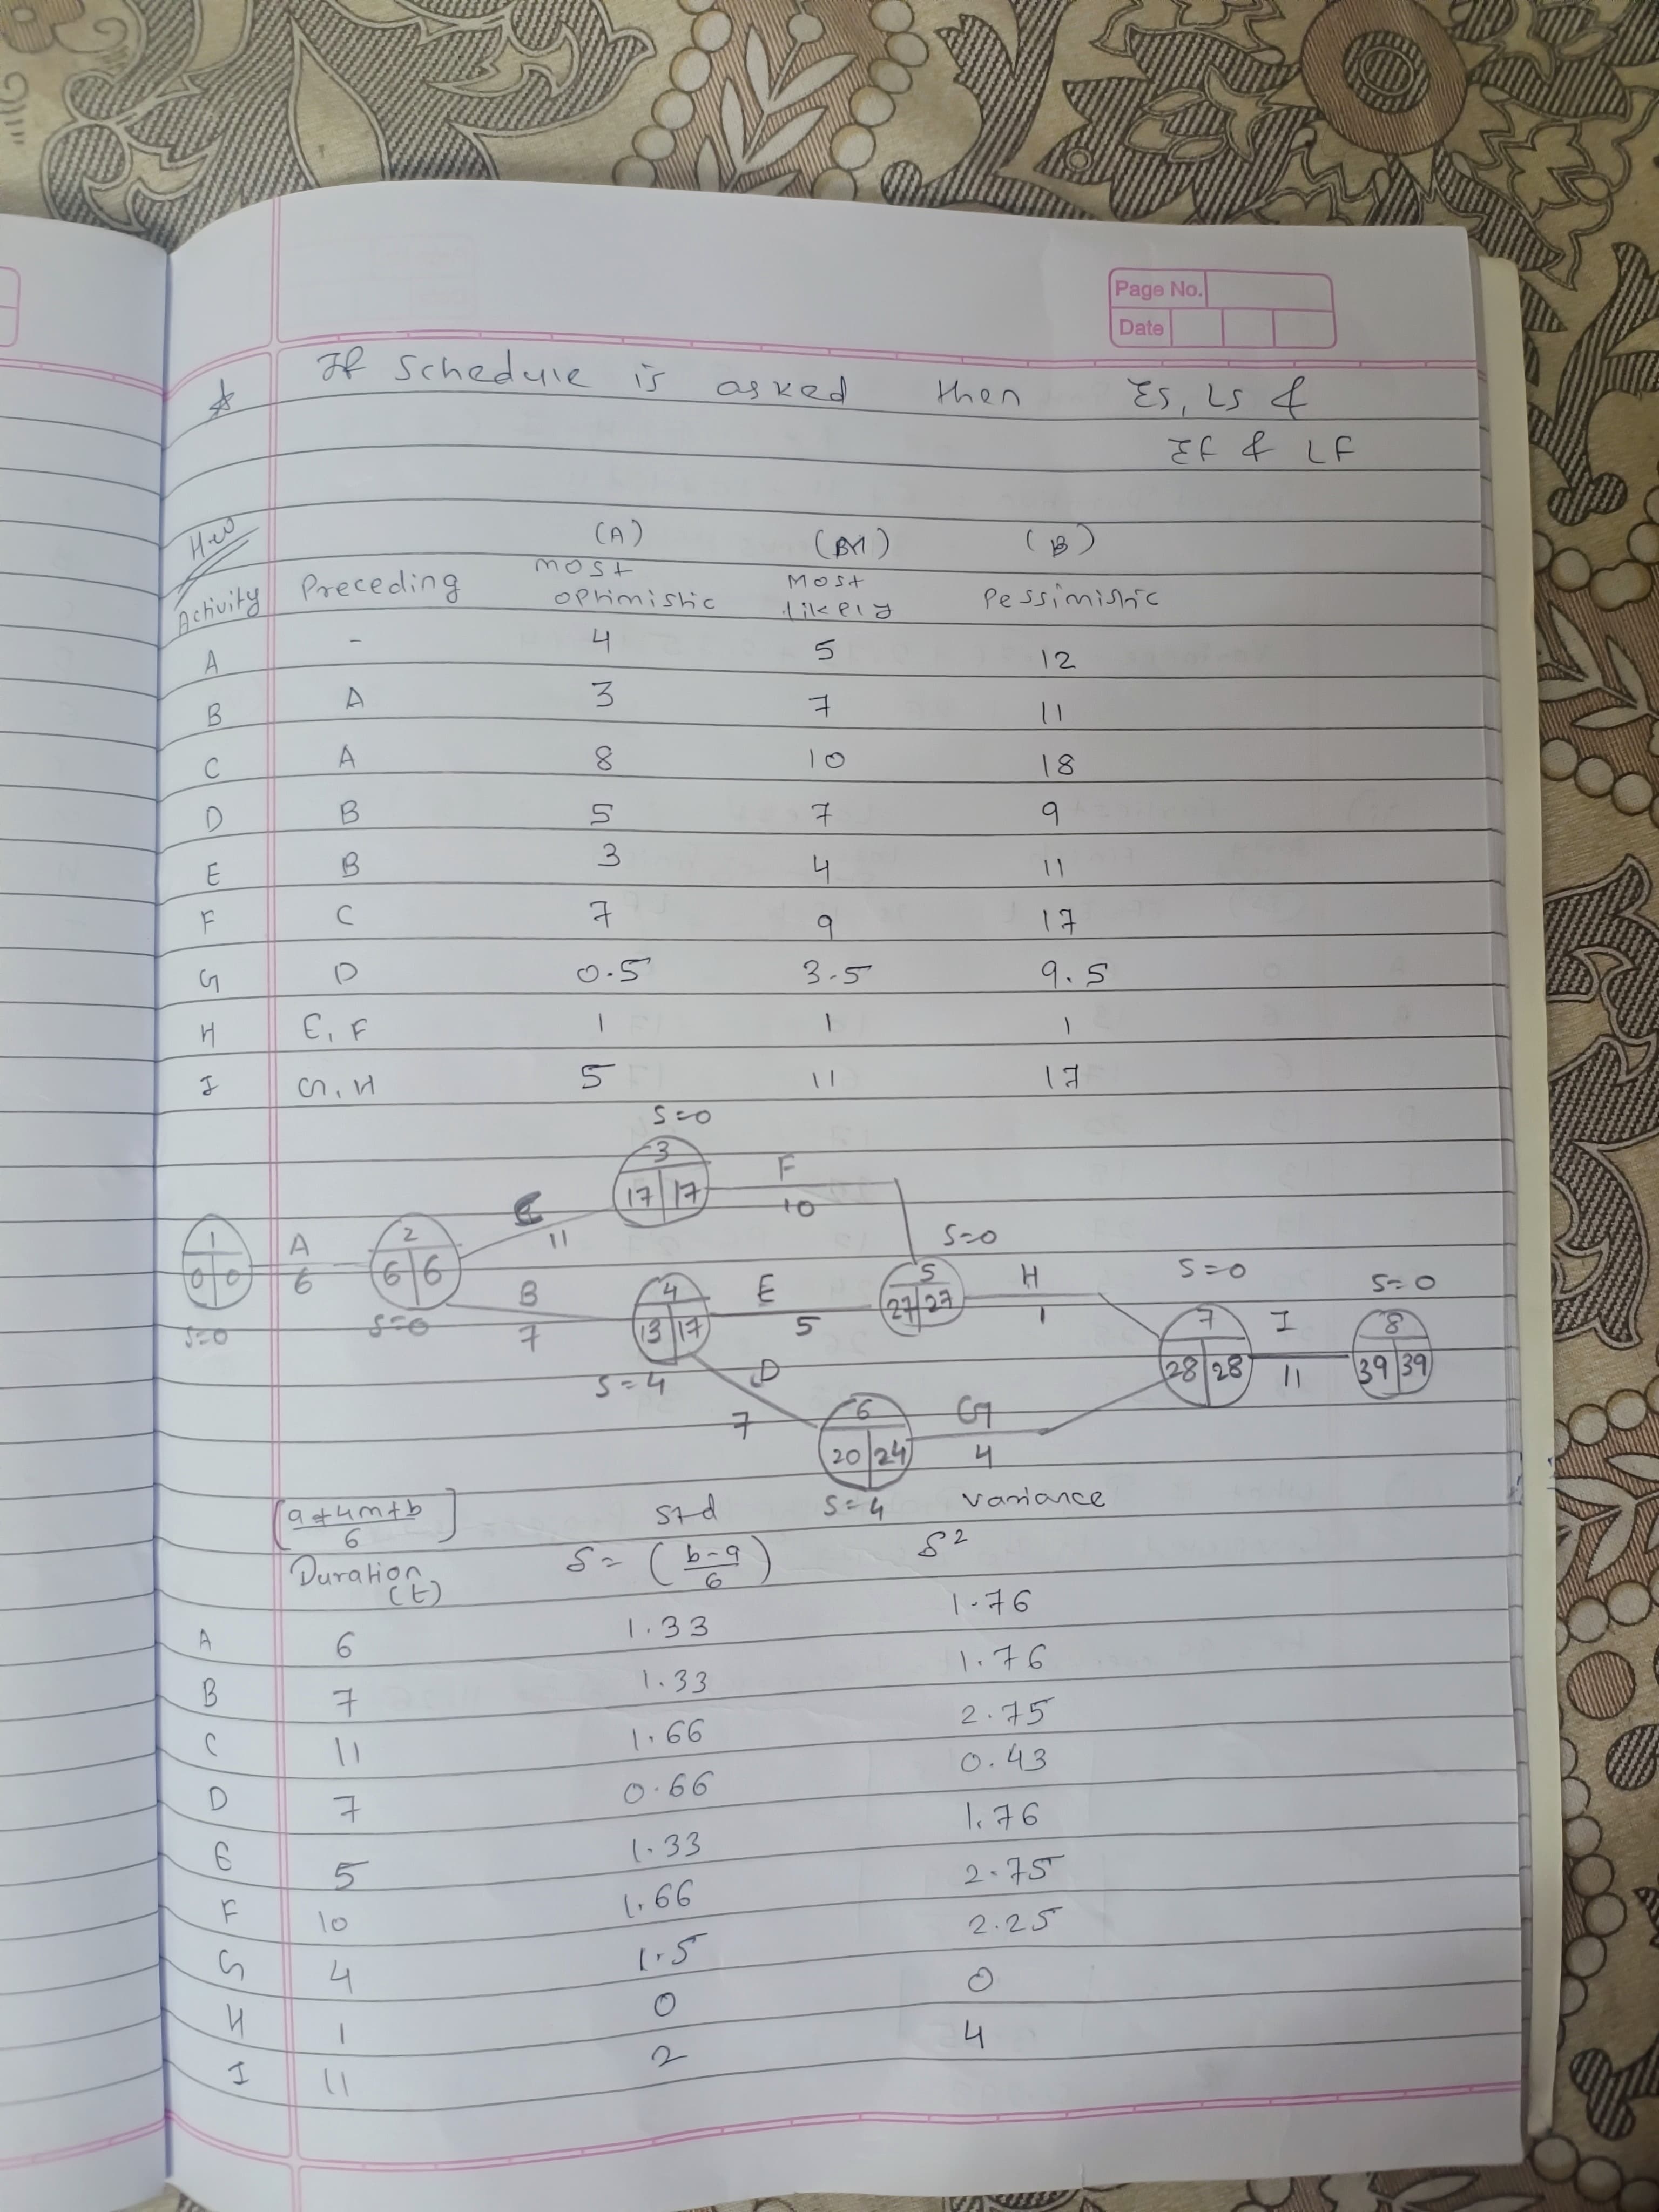 Page No.
Date
☆ If schedule is asked then ES, LS &
EF & LF
H.W
(A) (M) (B)
Activity Preceding most optimistic Most likely Pessimistic
A - 4 5 12
B A 3 7 11
C A 8 10 18
D B 5 7 9
E B 3 4 11
F C 7 9 17
G D 0.5 3.5 9.5
H E, F 1 1 1
I G, H 5 11 17
S=0
3
17 17
F
10
C
11
1
0 0
S=0
A
6
2
6 6
S=0
B
7
4
13 17
S=4
E
5
S=0
5
27 27
H
1
S=0
7
28 28
I
11
S=0
8
39 39
D
7
6
20 24
S=4
G
4
[a+4m+b/6] std variance
Duration (t) S = (b-a/6) S²
A 6 1.33 1.76
B 7 1.33 1.76
C 11 1.66 2.75
D 7 0.66 0.43
E 5 1.33 1.76
F 10 1.66 2.75
G 4 1.5 2.25
H 1 0 0
I 11 2 4